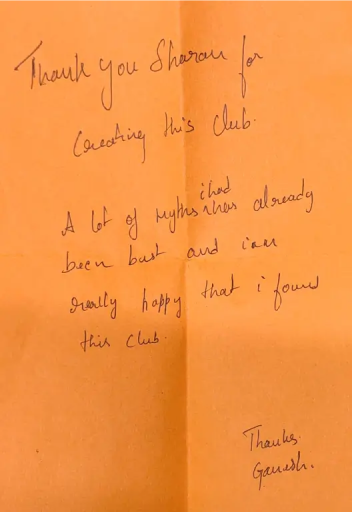 Thank you Sharan for
Creating this club.
i had
A lot of myths has already
been bust and i am
really happy that i found
this club.
Thanks.
Ganesh.